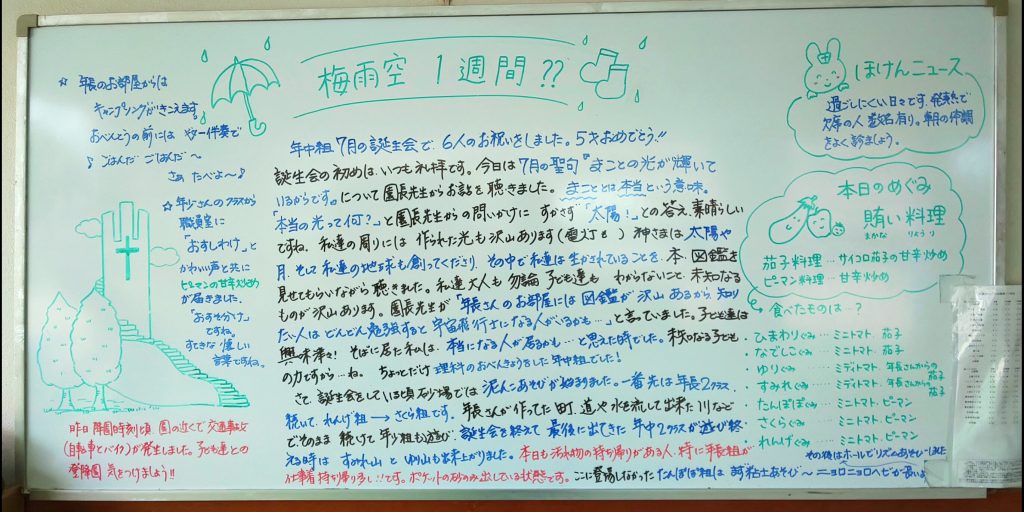 梅雨空 1週間??
☆ 年長のお部屋からは
キャンプソングがきこえます。
おべんとうの前には ギター伴奏で
♪ ごはんだ ごはんだ〜
さぁ たべよ〜♪
☆ 年少さんのクラスから
職員室に
「おすしわけ」と
かわいい声と共に
ピーマンの甘辛炒め
が届きました。
「おすそ分け」
ですね。
すてきな優しい
言葉ですね。
昨日 降園時刻頃 園の近くで 交通事故
(自転車とバイク)が発生しました。子ども達との
登降園 気をつけましょう!!
年中組 7月の誕生会で、6人のお祝いをしました。5才おめでとう!!
誕生会の初めは、いつも礼拝です。今日は 7月の聖句『まことの光が輝いて
いるからです。』について園長先生からお話を聴きました。まこととは本当という意味。
「本当の光って何?」と園長先生からの問いかけに すかさず「太陽!」との答え、素晴らしい
ですね。私達の周りには 作られた光も沢山あります(電灯 も) 神さまは 太陽や
月、そして私達の地球も創ってくださり、その中で私達は生かされていることを、本、図鑑を
見せてもらいながら聴きました。私達大人も勿論 子ども達も わからないこと 未知なる
ものが沢山あります。園長先生が「年長さんのお部屋には図鑑が沢山あるから 知り
たい人はどんどん勉強すると宇宙飛行士になる人がいるかも…」と言っていました。子ども達は
興味津々! そばに居た私は、本当になる人が居るかも…と思えた時でした。未知なる子ども
の力ですから…ね。 ちょっとだけ理科のおべんきょうをした年中組でした!
さて、誕生会をしている頃 砂場では 泥んこあそびが始まりました。一番先は年長2クラス、
続いて、れんげ組→さくら組です。年長さんが作った町、道や水を流して出来た川など
そのまま 続けて年少組も遊び、誕生会を終えて 最後に出てきた 年中2クラスが遊び終
える時は すみれ山 と ゆり山も出来上がりました。本日も汚れ物の持ち帰りがある人、特に年長組が
仕事着持ち帰り多し!!です。ポケットの砂のみ出している状態です。ここに登場しなかった たんぽぽ組は
ほけんニュース
過ごしにくい日々です。発熱で
欠席の人 数名有り。朝の体調
をよく診ましょう。
本日のめぐみ
賄い料理
まかな りょうり
茄子料理…サイコロ茄子の甘辛炒め
ピーマン料理…甘辛炒め
食べたものは?
・ひまわりぐみ…ミニトマト、茄子
・なでしこぐみ…ミニトマト、茄子
・ゆりぐみ…ミディトマト、年長さんからの茄子
・すみれぐみ…ミディトマト、年長さんからの茄子
・たんぽぽぐみ…ミニトマト、ピーマン
・さくらぐみ…ミニトマト、ピーマン
・れんげぐみ…ミニトマト、ピーマン